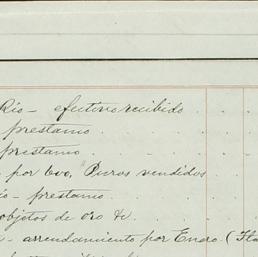 Rio - efectivo recibido
prestamo
prestamo
por 600, Puros vendidos
io - prestamo
objetos de oro &c
- arrendamiento por Enero (